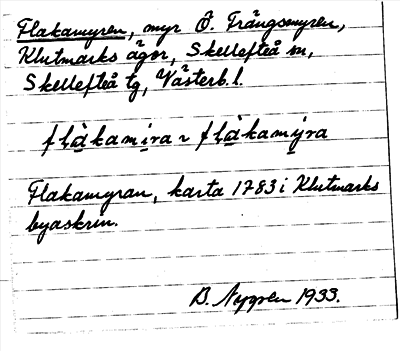 Flakamyren, myr Ö. Trångsmyren,
Klutmarks ägor, Skellefteå sn,
Skellefteå tg, Västerb. l.
flàkami̱ra ~ flàkamy̱ra
Flakamyran, karta 1783 i Klutmarks
byaskrin.
B. Nygren 1933.